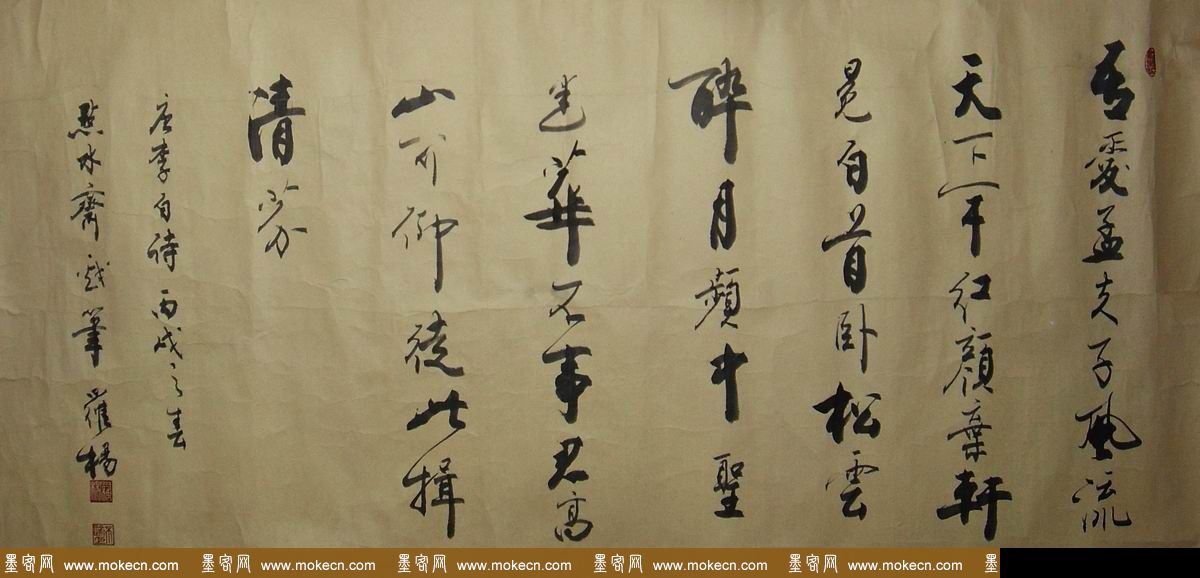 吾愛孟夫子風流
天下聞红顏棄軒
冕白首卧松雲
醉月頻中聖
迷華不事君高
山可仰徒此揖
清芬
唐李白詩丙戌之春
點水齋戲筆羅楊
墨客网 www.mokecn.com 墨客网 www.mokecn.com 墨客网 www.mokecn.com 墨客网 www.mokecn.com 墨客网 www.mokecn.com 墨客网 www.mokecn.com